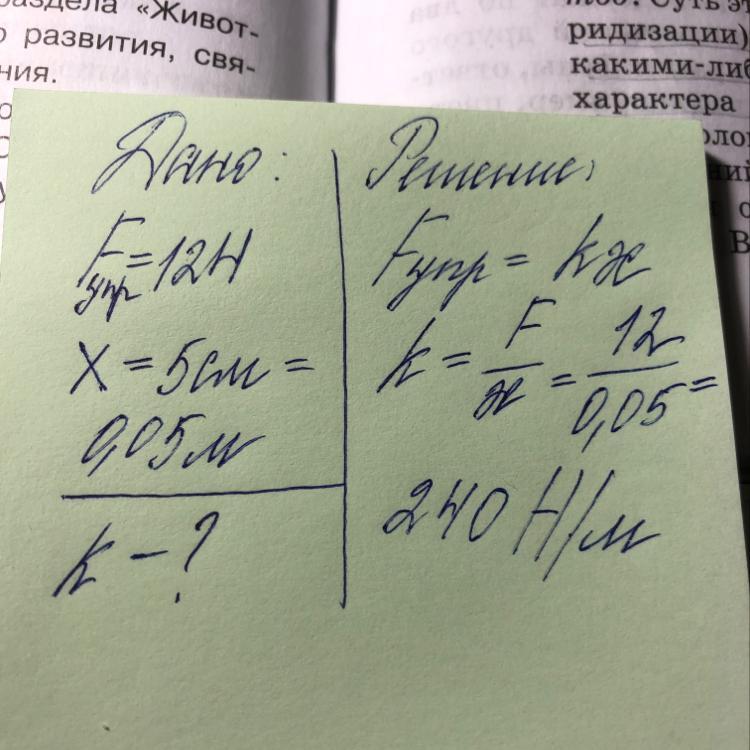 раздела «Живот-
о развития, свя-
ния.
ридизации)
какими-либ
характера
Дано:
Fупр=12Н
X = 5см =
0,05м
k - ?
Решение:
Fупр = kx
k = F/x = 12/0,05 =
240 Н/м